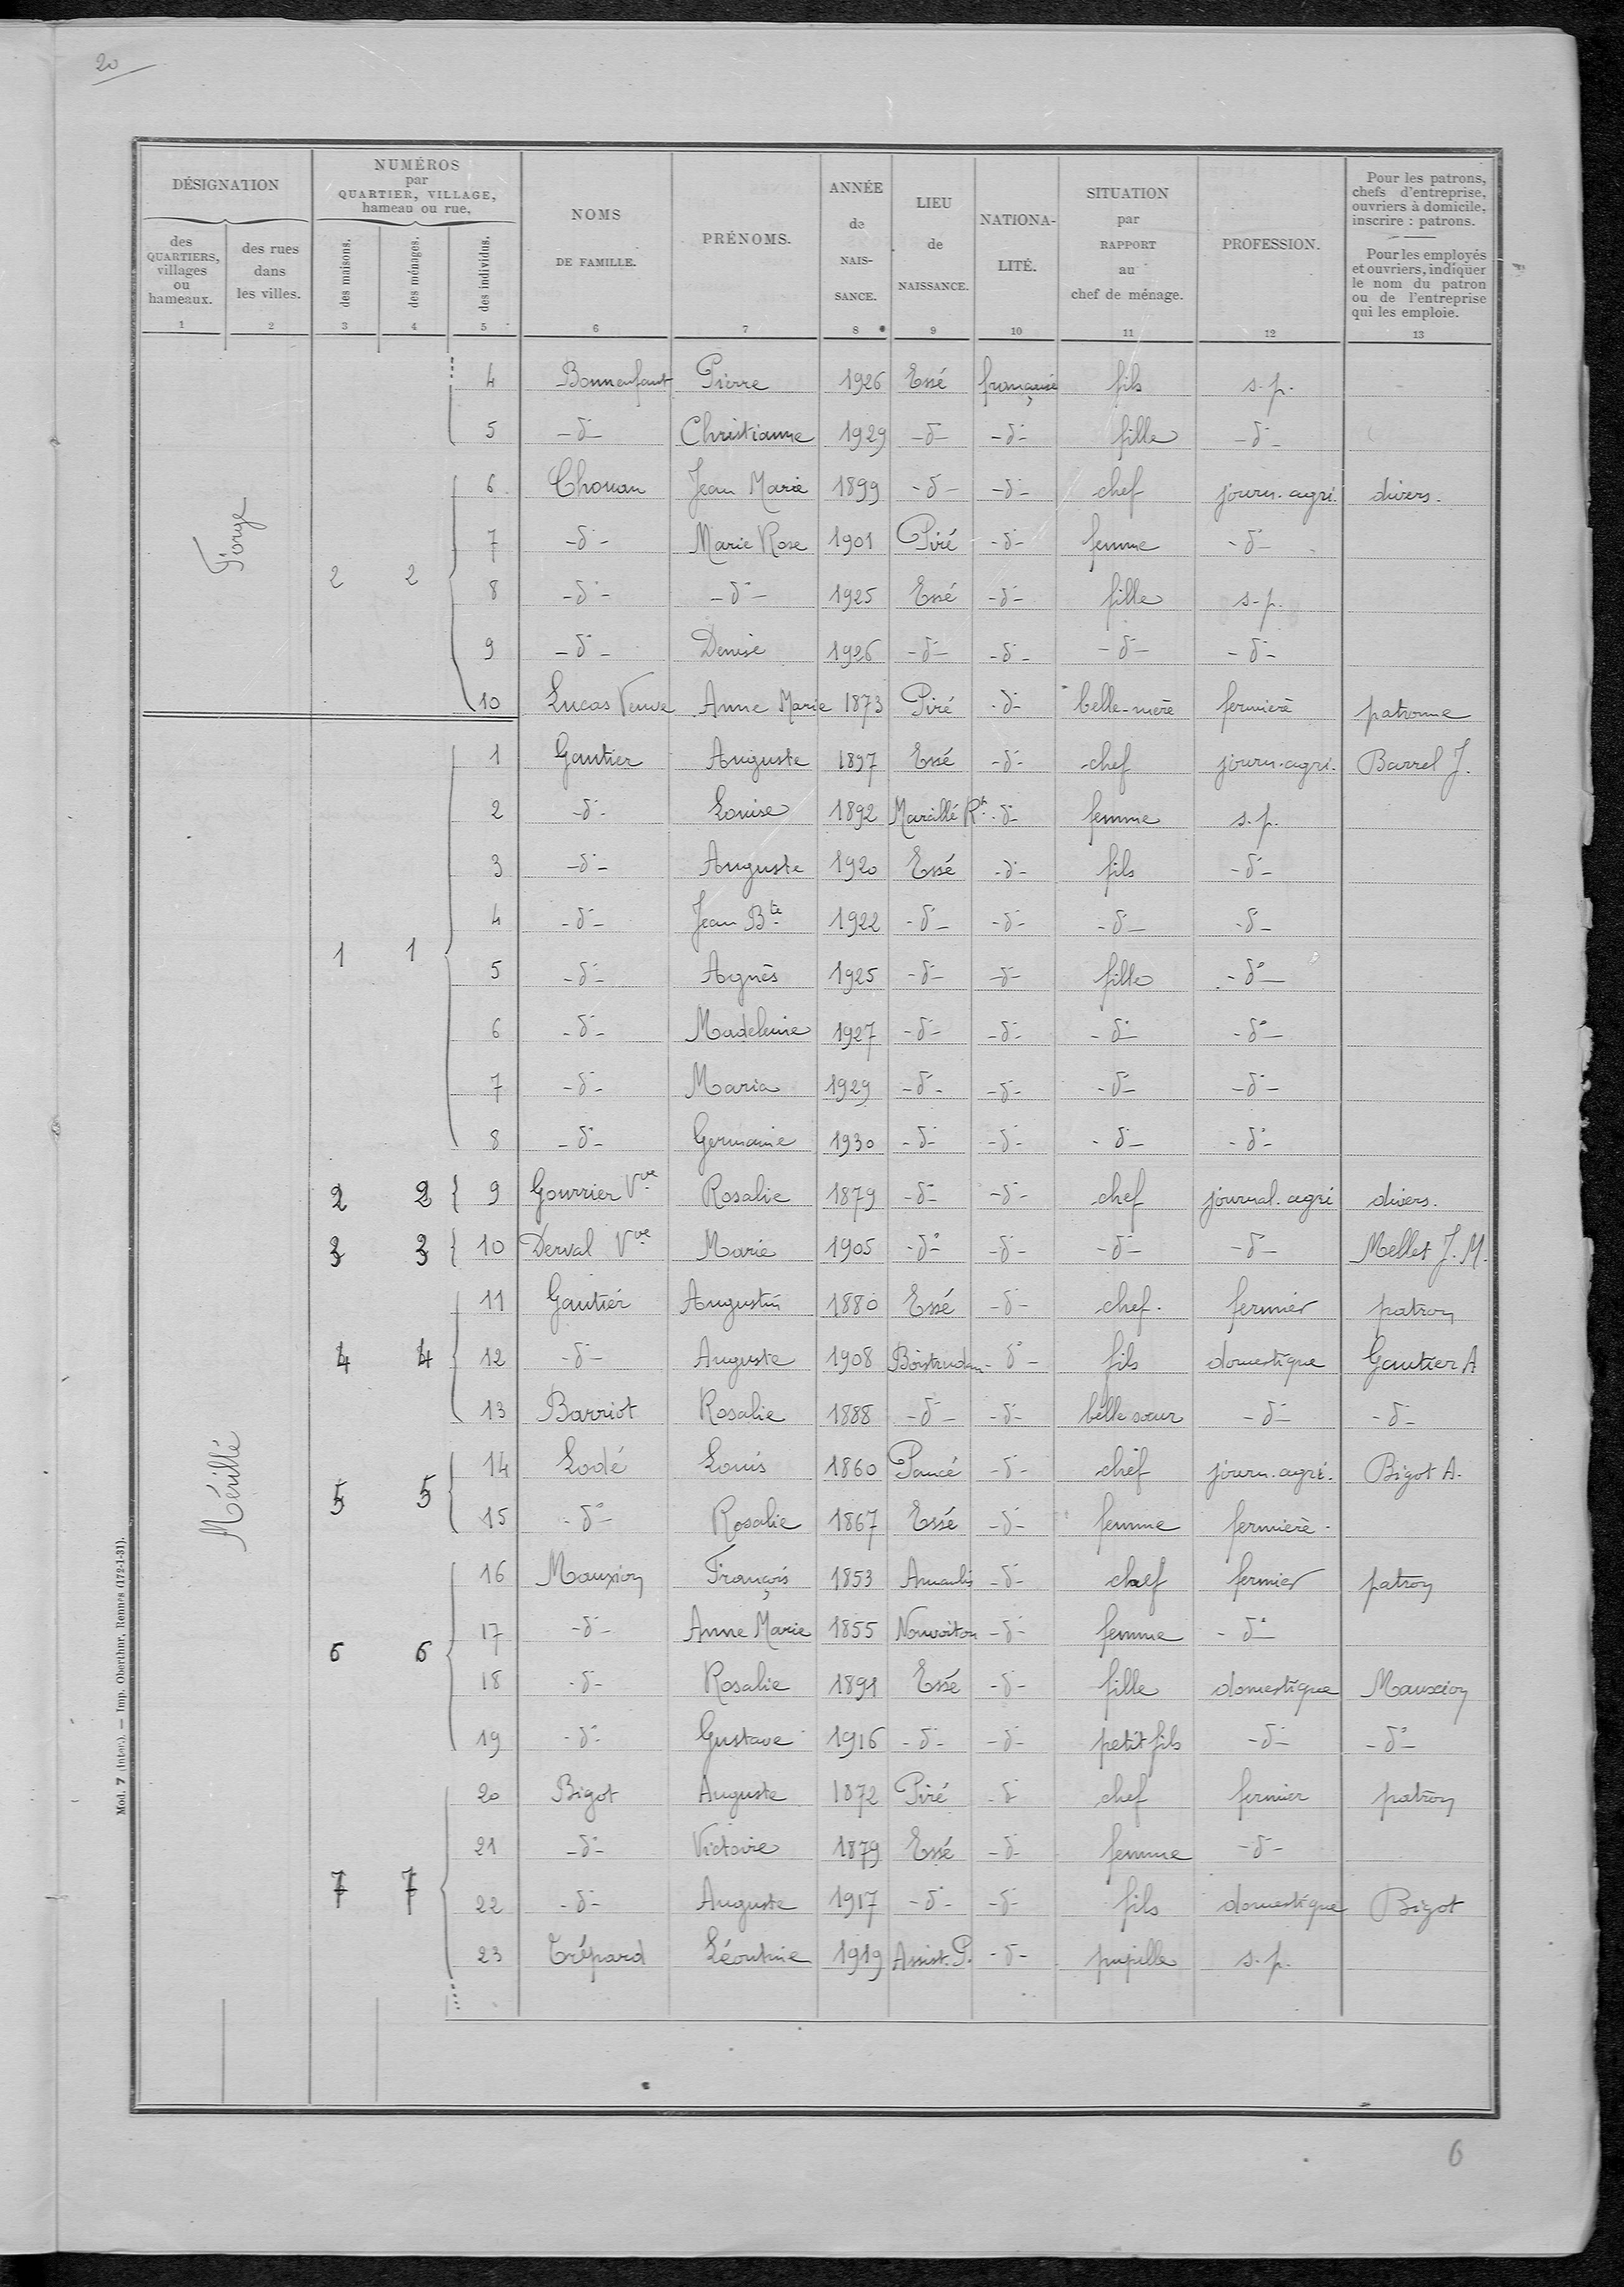 20
DÉSIGNATION
NUMÉROS
par
QUARTIER, VILLAGE,
hameau ou rue,
des QUARTIERS, villages ou hameaux.
des rues dans les villes.
des maisons.
des ménages.
des individus.
NOMS DE FAMILLE.
PRÉNOMS.
ANNÉE de NAIS- SANCE.
LIEU de NAISSANCE.
NATIONA- LITÉ.
SITUATION par RAPPORT au chef de ménage.
PROFESSION.
Pour les patrons,
chefs d'entreprise,
ouvriers à domicile,
inscrire : patrons.
Pour les employés
et ouvriers, indiquer
le nom du patron
ou de l'entreprise
qui les emploie.
1 2 3 4 5 6 7 8 9 10 11 12 13
Forge
4 Bonnenfant Pierre 1926 Essé française fils s.p.
5 -d°- Christianne 1929 -d°- -d°- fille -d°-
2 2
6 Chouan Jean Marie 1899 -d°- -d°- chef journ. agri. divers.
7 -d°- Marie Rose 1901 Piré -d°- femme -d°-
8 -d°- -d°- 1925 Essé -d°- fille s.p.
9 -d°- Denise 1926 -d°- -d°- -d°- -d°-
10 Lucas Veuve Anne Marie 1873 Piré -d°- belle-mère fermière patronne
Méillé
1 1
1 Gautier Auguste 1897 Essé -d°- chef journ. agri. Barrel J.
2 -d°- Louise 1892 Marcillé Rt -d°- femme s.p.
3 -d°- Auguste 1920 Essé -d°- fils -d°-
4 -d°- Jean Bte 1922 -d°- -d°- -d°- -d°-
5 -d°- Agnès 1925 -d°- -d°- fille -d°-
6 -d°- Madeleine 1927 -d°- -d°- -d°- -d°-
7 -d°- Maria 1929 -d°- -d°- -d°- -d°-
8 -d°- Germaine 1930 -d°- -d°- -d°- -d°-
2 2 9 Gourrier Vve Rosalie 1879 -d°- -d°- chef journal. agri divers.
3 3 10 Derval Vve Marie 1905 -d°- -d°- -d°- -d°- Mellet J. M.
4 4
11 Gautier Augustin 1880 Essé -d°- chef. fermier patron
12 -d°- Auguste 1908 Boistrudan -d°- fils domestique Gautier A
13 Barriot Rosalie 1888 -d°- -d°- belle sœur -d°- -d°-
5 5
14 Lodé Louis 1860 Pancé -d°- chef journ. agri. Bigot A.
15 -d°- Rosalie 1867 Essé -d°- femme fermière.
6 6
16 Mauxion François 1853 Amanlis -d°- chef fermier patron
17 -d°- Anne Marie 1855 Nouvoitou -d°- femme -d°-
18 -d°- Rosalie 1891 Essé -d°- fille domestique Mauxion
19 -d°- Gustave 1916 -d°- -d°- petit fils -d°- -d°-
7 7
20 Bigot Auguste 1872 Piré -d°- chef fermier patron
21 -d°- Victoire 1879 Essé -d°- femme -d°-
22 -d°- Auguste 1917 -d°- -d°- fils domestique Bigot
23 Trépard Léontine 1919 Assist. P. -d°- pupille s.p.
Mod. 7 (inter.). — Imp. Oberthur, Rennes (172-1-31).
6